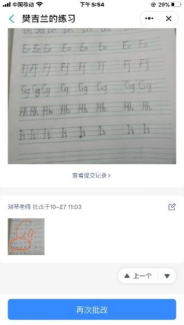 中国移动 下午5:54 89%
樊吉兰的练习
Ee Ee Ee Ee Ee Ee
Ff Ff Ff Ff Ff Ff
Gg Gg Gg Gg Gg Gg
Hh Hh Hh Hh Hh Hh
Ii Ii Ii Ii Ii Ii
查看提交记录>
老师 批改于10-27 11:03
Gg
上一个
再次批改